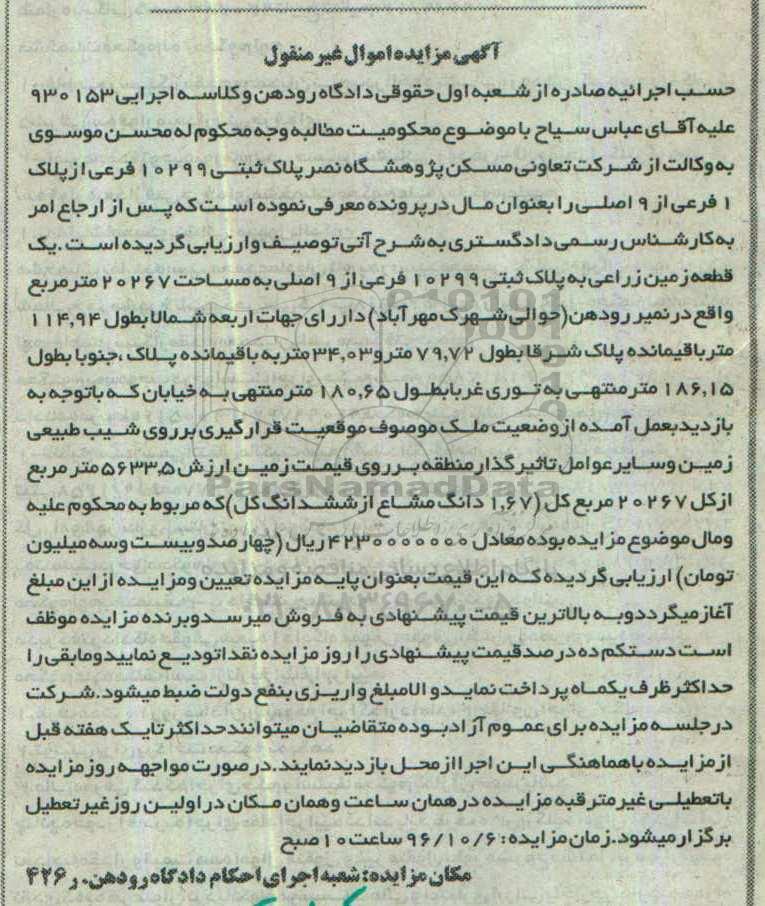 آگهی مزایده اموال غیر منقول
حسب اجرائیه صادره از شعبه اول حقوقی دادگاه رودهن و کلاسه اجرایی ۹۳۰۱۵۳
علیه آقای عباس سیاح با موضوع محکومیت مطالبه وجه محکوم له محسن موسوی
به وکالت از شرکت تعاونی مسکن پژوهشگاه نصر پلاک ثبتی ۱۰۲۹۹ فرعی از پلاک
۱ فرعی از ۹ اصلی را بعنوان مال در پرونده معرفی نموده است که پس از ارجاع امر
به کارشناس رسمی دادگستری به شرح آتی توصیف و ارزیابی گردیده است .یک
قطعه زمین زراعی به پلاک ثبتی ۱۰۲۹۹ فرعی از ۹ اصلی به مساحت ۲۰۲۶۷ متر مربع
واقع در نمیر رودهن(حوالی شهرک مهرآباد) دارای جهات اربعه شمالا بطول ۱۱۴,۹۴
متر باقیمانده پلاک شرقا بطول ۷۹,۷۲ متر و ۳۴,۰۳ متر به باقیمانده پلاک ،جنوبا بطول
۱۸۶,۱۵ متر منتهی به توری غربا بطول ۱۸۰,۶۵ متر منتهی به خیابان که باتوجه به
بازدید بعمل آمده از وضعیت ملک موصوف موقعیت قرارگیری بر روی شیب طبیعی
زمین و سایر عوامل تاثیر گذار منطقه بر روی قیمت زمین ارزش ۵۶۳۳,۵ متر مربع
از کل ۲۰۲۶۷ مربع کل (۱,۶۷ دانگ مشاع از ششدانگ کل)که مربوط به محکوم علیه
و مال موضوع مزایده بوده معادل ۴۲۳۰۰۰۰۰۰۰ ریال (چهارصدوبیست وسه میلیون
تومان) ارزیابی گردیده که این قیمت بعنوان پایه مزایده تعیین و مزایده از این مبلغ
آغاز میگردد و به بالاترین قیمت پیشنهادی به فروش میرسد و برنده مزایده موظف
است دستکم ده درصد قیمت پیشنهادی را روز مزایده نقدا تودیع نماید و مابقی را
حداکثر ظرف یکماه پرداخت نماید و الا مبلغ واریزی بنفع دولت ضبط میشود.شرکت
در جلسه مزایده برای عموم آزاد بوده متقاضیان میتوانند حداکثر تا یک هفته قبل
از مزایده با هماهنگی این اجرا از محل بازدید نمایند. در صورت مواجهه روز مزایده
با تعطیلی غیر مترقبه مزایده در همان ساعت و همان مکان در اولین روز غیر تعطیل
برگزار میشود.زمان مزایده: ۹۶/۱۰/۶ ساعت ۱۰ صبح
مکان مزایده: شعبه اجرای احکام دادگاه رودهن. ر ۴۲۶
ParsNamadData